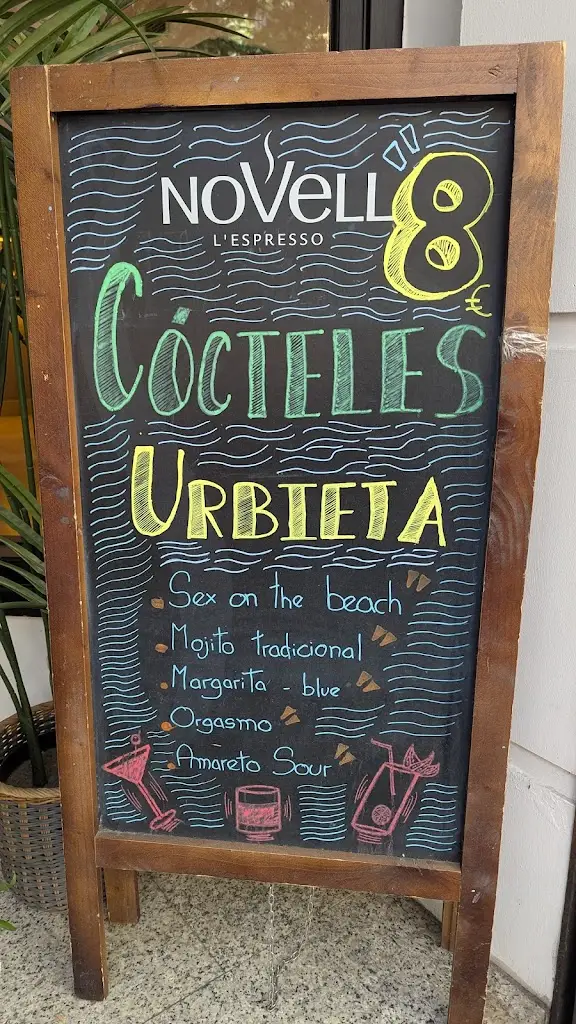 NOVELL
L'ESPRESSO
8
€
CÓCTELES
URBIETA
Sex on the beach
Mojito tradicional
Margarita - blue
Orgasmo
Amareto Sour